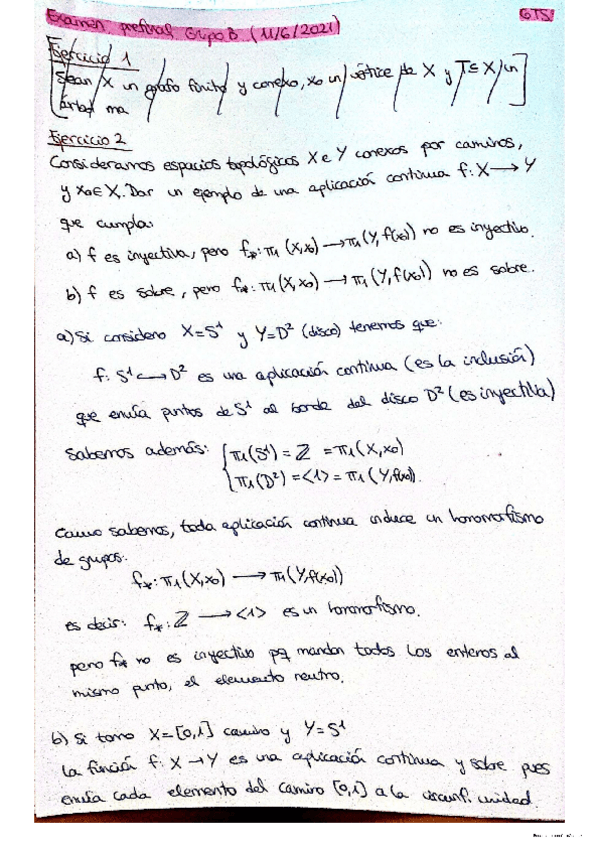 Examen prefinal Grupo B (11/6/2021)
GTS
Ejercicio 1
[Sean X un grafo finito y conexo, x₀ un vértice de X y T⊆X un
árbol ma]
Ejercicio 2
Consideramos espacios topológicos X e Y conexos por caminos,
y x₀∈X. Dar un ejemplo de una aplicación continua f: X → Y
que cumpla:
a) f es inyectiva, pero f*: π₁(X,x₀) → π₁(Y,f(x₀)) no es inyectivo.
b) f es sobre, pero f*: π₁(X,x₀) → π₁(Y,f(x₀)) no es sobre.
a) Si considero X=S¹ y Y=D² (disco) tenemos que:
f: S¹ ↪ D² es una aplicación continua (es la inclusión)
que envía puntos de S¹ al borde del disco D² (es inyectiva)
Sabemos además: { π₁(S¹) = ℤ = π₁(X,x₀)
π₁(D²) = <1> = π₁(Y,f(x₀)).
Como sabemos, toda aplicación continua induce un homomorfismo
de grupos:
f*: π₁(X,x₀) → π₁(Y,f(x₀))
es decir: f*: ℤ → <1> es un homomorfismo.
pero f* no es inyectivo pq mandan todos los enteros al
mismo punto, el elemento neutro.
b) Si tomo X=[0,1] camino y Y=S¹
La función f: X → Y es una aplicación continua y sobre pues
envía cada elemento del camino [0,1] a la circunf. unidad.